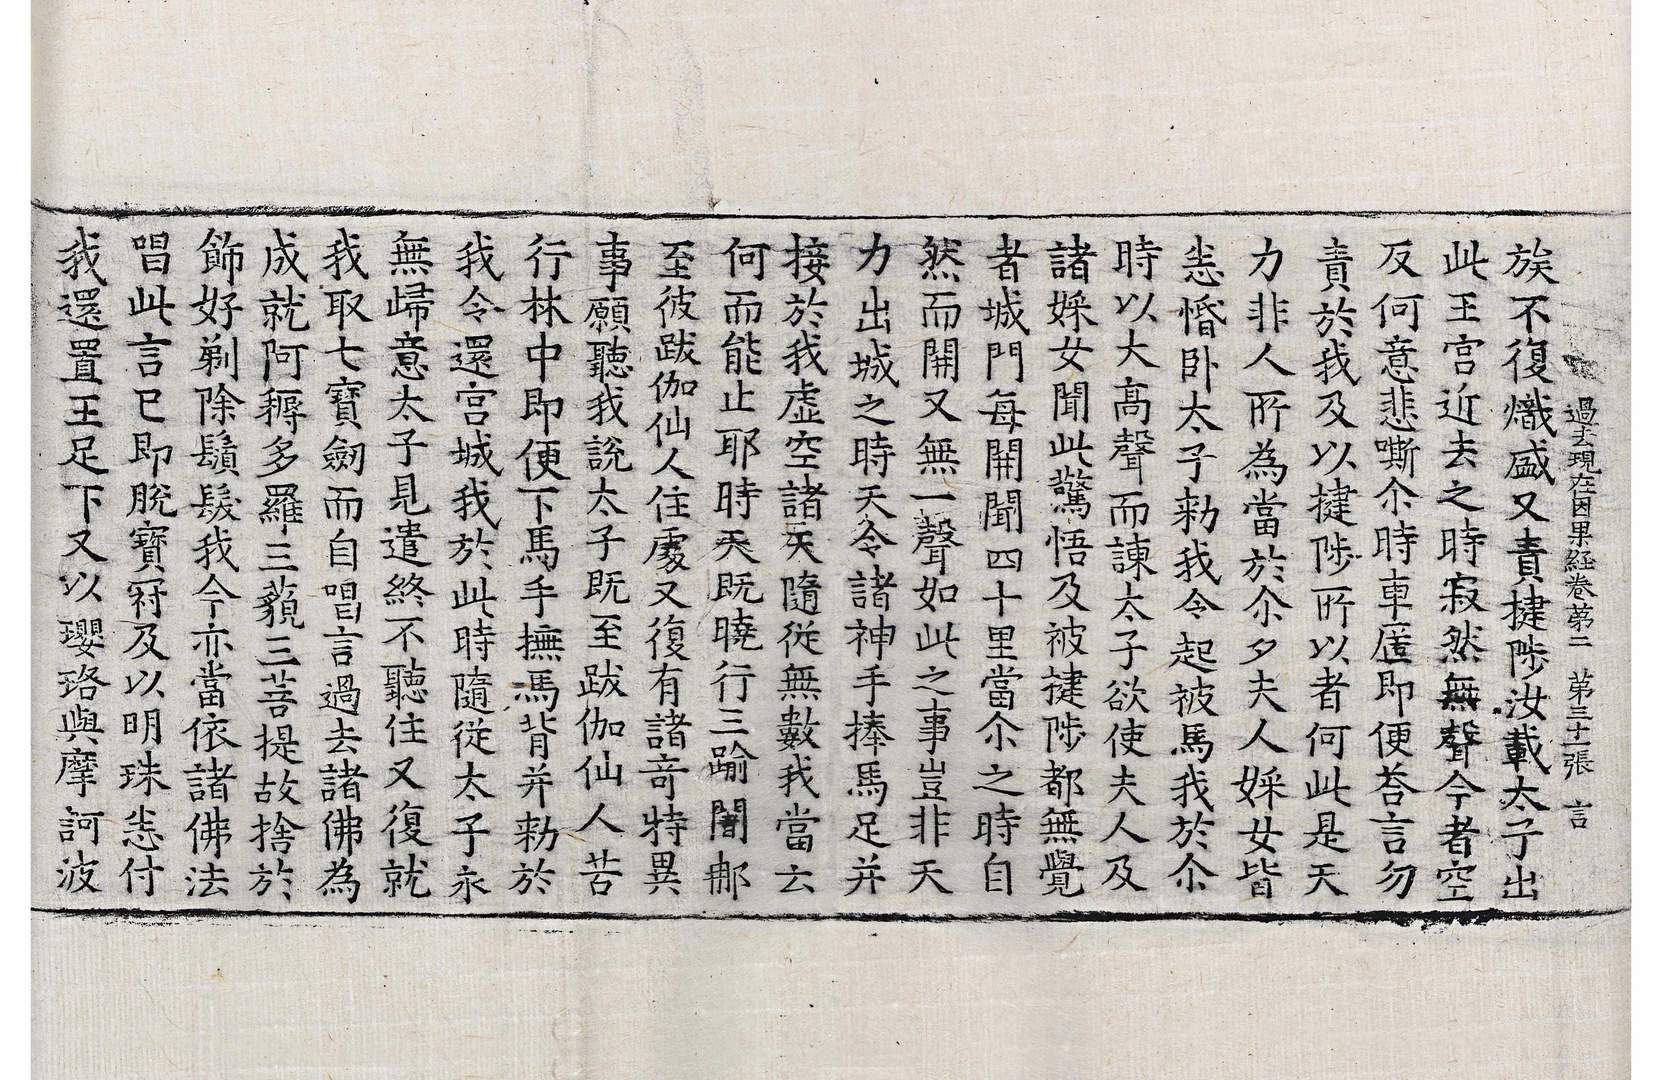 過去現在因果経卷第二　第三十一張　言
族不復熾盛又責揵陟汝載太子出
此王宮近去之時寂然無聲今者空
反何意悲嘶尒時車匿即便荅言勿
責於我及以揵陟所以者何此是天
力非人所為當於尒夕夫人婇女皆
悉惛卧太子勑我令起被馬我於尒
時以大高聲而諫太子欲使夫人及
諸婇女聞此驚悟及被揵陟都無覺
者城門每開聞四十里當尒之時自
然而開又無一聲如此之事豈非天
力出城之時天令諸神手捧馬足并
接於我虛空諸天隨従無數我當云
何而能止耶時天既曉行三踰闍那
至彼跋伽仙人住處又復有諸竒特異
事願聽我說太子既至跋伽仙人苦
行林中即便下馬手撫馬背并勑於
我令還宮城我於此時隨従太子永
無歸意太子見遣終不聽住又復就
我取七寶劒而自唱言過去諸佛為
成就阿耨多羅三藐三菩提故捨於
飾好剃除鬚髮我今亦當依諸佛法
唱此言已即脫寶冠及以明珠悉付
我還置王足下又以瓔珞與摩訶波